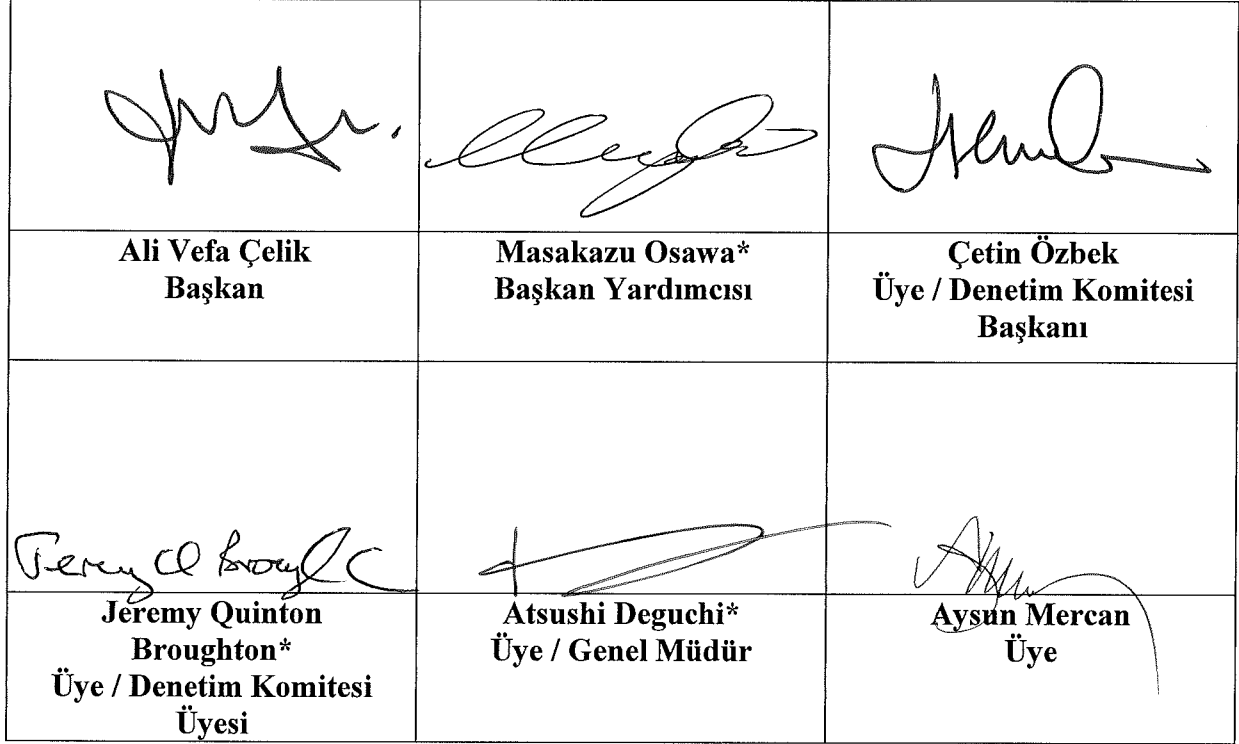 Ali Vefa Çelik
Başkan
Masakazu Osawa*
Başkan Yardımcısı
Çetin Özbek
Üye / Denetim Komitesi
Başkanı
Jeremy Quinton
Broughton*
Üye / Denetim Komitesi
Üyesi
Atsushi Deguchi*
Üye / Genel Müdür
Aysun Mercan
Üye